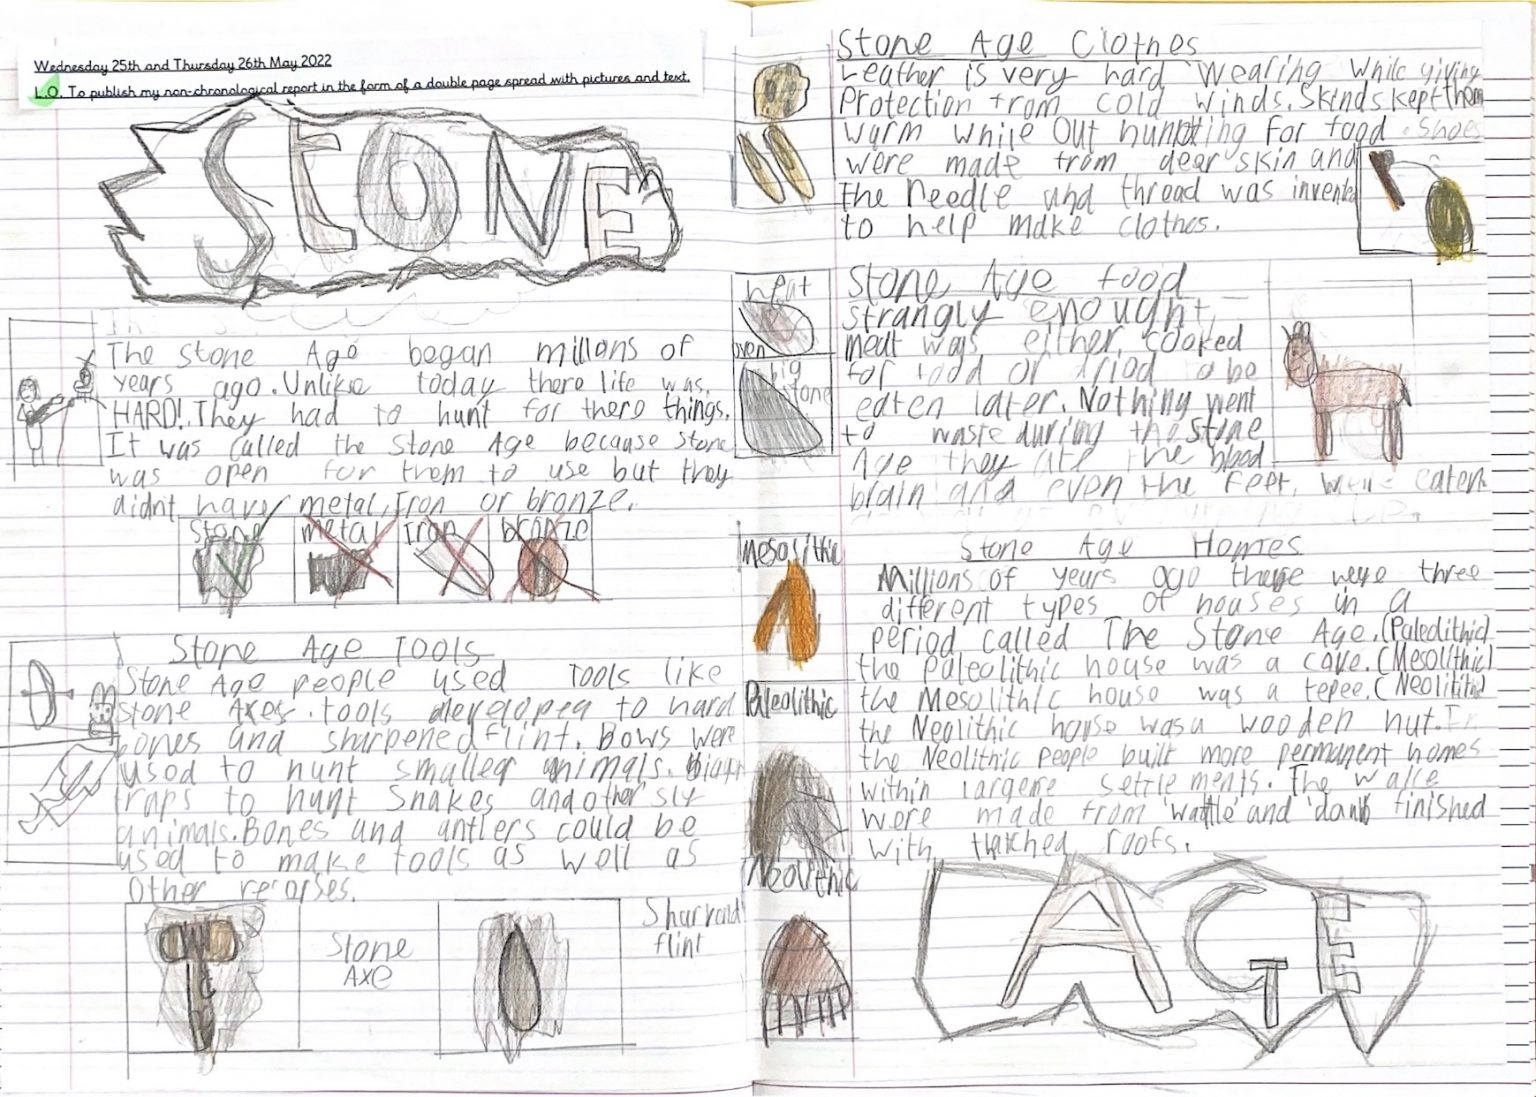 Wednesday 25th and Thursday 26th May 2022
L.O. To publish my non-chronological report in the form of a double page spread with pictures and text.
STONE
The Stone Age began millons of
years ago. Unlike today there life was
HARD! They had to hunt for there things.
It was called the Stone Age because stone
was open for them to use but they
didnt have metal, Iron or bronze.
Stone metal Iron bronze
Stone Age Tools
Stone Age people used tools like
stone Axes. tools developed to hard
bones and sharpened flint. Bows were
used to hunt smaller animals.
traps to hunt snakes and other sly
animals. Bones and antlers could be
used to make tools as well as
other recorses.
Stone
Axe
flint
Stone Age Clothes
Leather is very hard wearing while giving
Protection from cold winds. Skinds kept them
warm while out hunting for food. Shoes
were made from dear skin and
the needle and thread was invented
to help make clothes.
meat
oven
big
stone
Stone Age food
strangly enought,
meat was either cooked
for food or dried to be
eaten later. Nothing went
to waste during the stone
Age they ate the blood
brain and even the feet, were eaten
Mesolithic
Paleolithic
Neolithic
Stone Age Homes
Millions of years ago there were three
different types of houses in a
period called The Stone Age. (Paleolithic)
the Paleolithic house was a cave. (Mesolithic)
the Mesolithic house was a tepee. (Neolithic)
the Neolithic house was a wooden hut. In
the Neolithic People built more permanent homes
within largere settlements. The walle
were made from 'wattle' and finished
with thatched roofs.
AGE